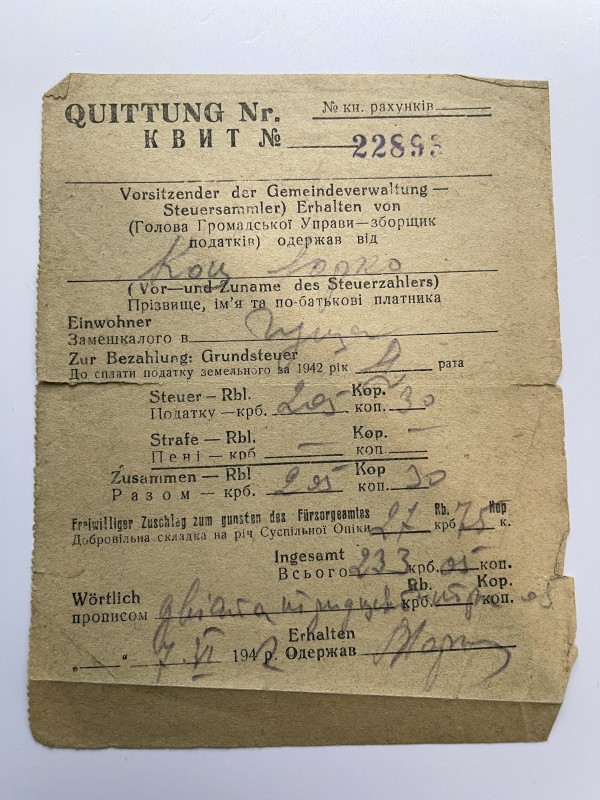 QUITTUNG Nr.
№ кн. рахунків
КВИТ №
22893
Vorsitzender der Gemeindeverwaltung —
Steuersammler) Erhalten von
(Голова Громадської Управи—зборщик
податків) одержав від
Коц
(Vor—und Zuname des Steuerzahlers)
Прізвище, ім'я та по-батькові платника
Einwohner
Замешкалого в
Zur Bezahlung: Grundsteuer
До сплати податку земельного за 1942 рік рата
Steuer — Rbl. Kop.
Податку — крб. 205 коп. 30
Strafe — Rbl. Kop. —
Пені — крб. — коп.
Zusammen — Rbl Kop
Разом — крб. 205 коп. 30
Freiwilliger Zuschlag zum gunsten des Fürsorgeamtes Rb. Kop
Добровільна складка на річ Суспільної Опіки 27 крб 75 к.
Ingesamt
Всього 233 крб. 05 коп.
Rb. Kop.
Wörtlich
прописом двіста тридцять три крб. 05 коп.
Erhalten
„ “ 7. VI 1942 р. Одержав